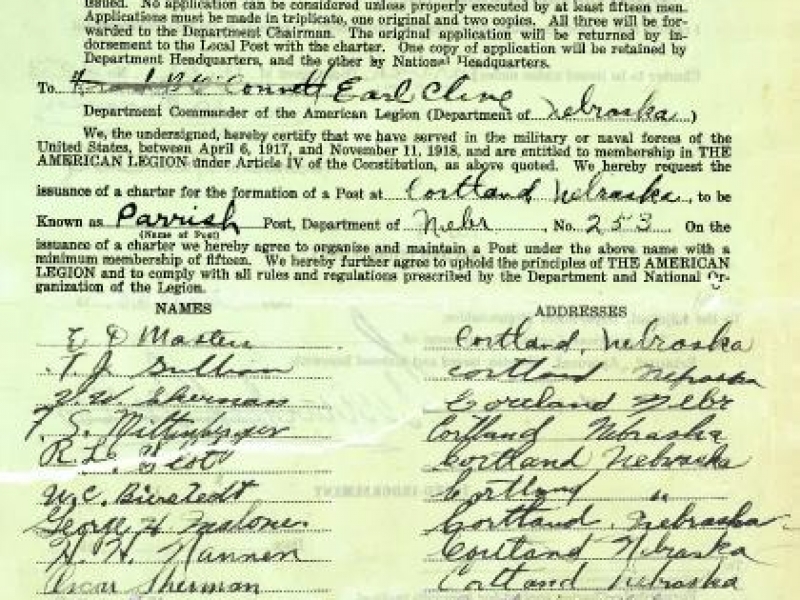 issued. No application can be considered unless properly executed by at least fifteen men.
Applications must be made in triplicate, one original and two copies. All three will be for-
warded to the Department Chairman. The original application will be returned by in-
dorsement to the Local Post with the charter. One copy of application will be retained by
Department Headquarters, and the other by National Headquarters.
To Earl Cline
Department Commander of the American Legion (Department of Nebraska)
We, the undersigned, hereby certify that we have served in the military or naval forces of the
United States, between April 6, 1917, and November 11, 1918, and are entitled to membership in THE
AMERICAN LEGION under Article IV of the Constitution, as above quoted. We hereby request the
issuance of a charter for the formation of a Post at Cortland Nebraska, to be
Known as Parrish Post, Department of Nebr, No. 253 On the
(Name of Post)
issuance of a charter we hereby agree to organize and maintain a Post under the above name with a
minimum membership of fifteen. We hereby further agree to uphold the principles of THE AMERICAN
LEGION and to comply with all rules and regulations prescribed by the Department and National Or-
ganization of the Legion.
NAMES ADDRESSES
E D Masten Cortland, Nebraska
T. J. Sullivan Cortland Nebraska
Sherman Cortland Nebr
Cortland Nebraska
Cortland Nebraska
W.C. Bierstedt Cortland "
George H Cortland, Nebraska
H. H. Nannen Cortland Nebraska
Oscar Sherman Cortland Nebraska